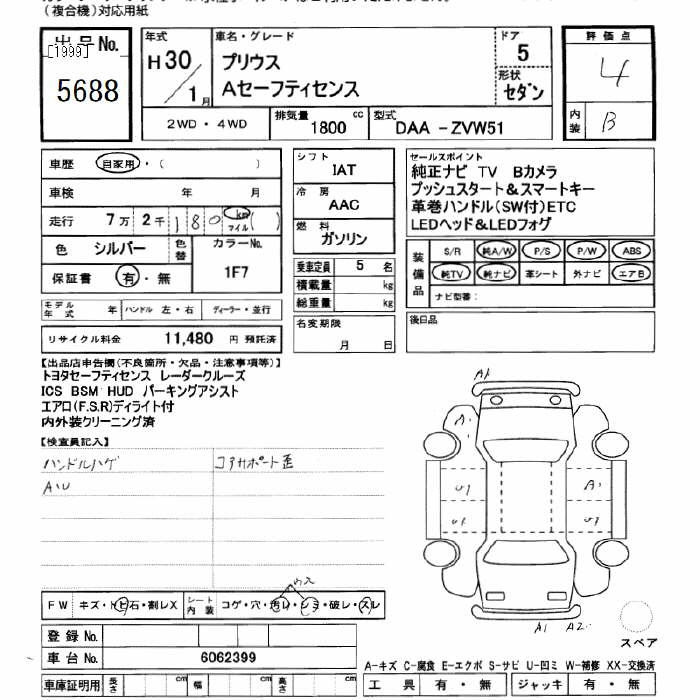 (複合機)対応用紙
出品No.
[1999]
5688
年式
H30/1月
車名・グレード
プリウス
Aセーフティセンス
ドア
5
形状
セダン
評価点
4
内装
B
2WD・4WD
排気量
1800 cc
型式
DAA -ZVW51
車歴 自家用・( )
車検 年 月
走行 7万2千180 km マイル ( )
色 シルバー
色替
カラーNo.
1F7
保証書 有・無
モデル年式 年 ハンドル 左・右 ディーラー・並行
リサイクル料金 11,480 円 預託済
シフト
IAT
冷房
AAC
燃料
ガソリン
乗車定員 5 名
積載量 kg
総重量 kg
名変期限
月 日
セールスポイント
純正ナビ TV Bカメラ
プッシュスタート&スマートキー
革巻ハンドル(SW付)ETC
LEDヘッド&LEDフォグ
装備品
S/R 純A/W P/S P/W ABS
純TV 純ナビ 革シート 外ナビ エアB
ナビ型番:
後日品
【出品店申告欄(不良箇所・欠品・注意事項等)】
トヨタセーフティセンス レーダークルーズ
ICS BSM HUD パーキングアシスト
エアロ(F.S.R)ディライト付
内外装クリーニング済
【検査員記入】
ハンドルハゲ コアサポート歪
A・U
FW キズ・トビ石・割レX
シート内装 コゲ・穴・汚レ・シミ・破レ・スレ
登録No.
車台No. 6062399
車庫証明用 長さ cm 幅 cm 高さ cm
A1
A1
U1 A1
U1 U1
A1 A2
スペア
A-キズ C-腐食 E-エクボ S-サビ U-凹ミ W-補修 XX-交換済
工具 有・無 ジャッキ 有・無